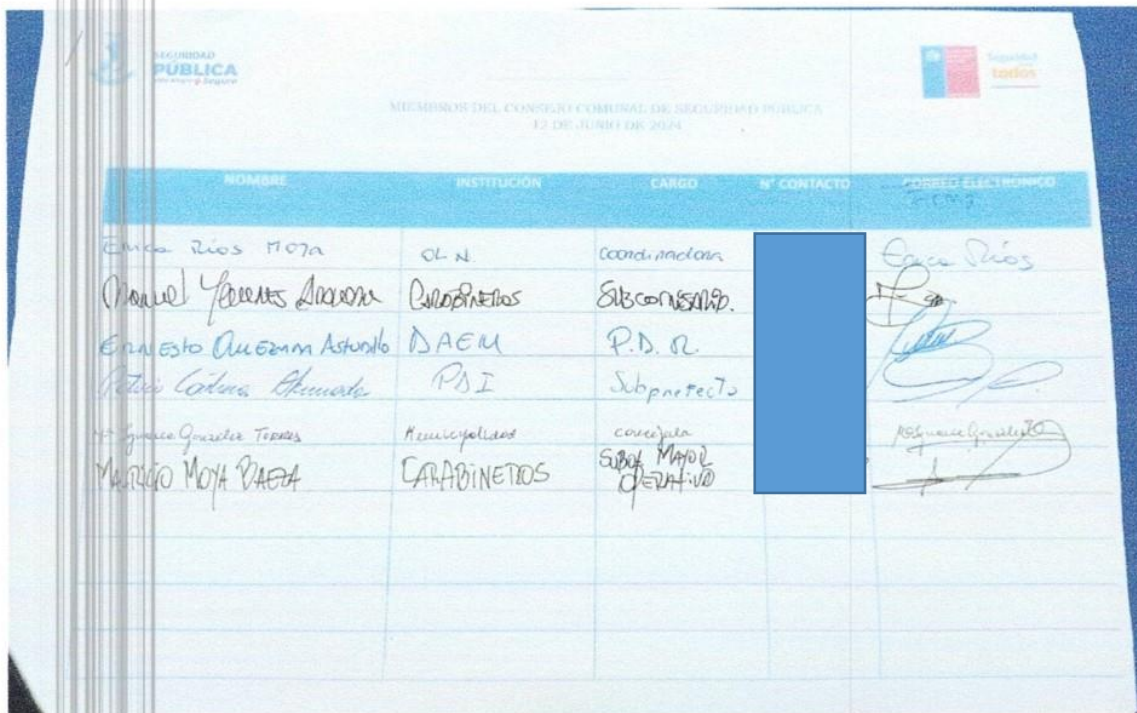 SEGURIDAD
PÚBLICA
Seguridad
todos
MIEMBROS DEL CONSEJO COMUNAL DE SEGURIDAD PÚBLICA
12 DE JUNIO DE 2024
NOMBRE INSTITUCIÓN CARGO N° CONTACTO CORREO ELECTRÓNICO
Erica Ríos Moya OLN Coordinadora Erica Ríos
Manuel CARABINEROS SUBCOMISARIO.
ERNESTO Astudillo DAEM P.D.R.
PDI Subprefecto
Mª Ignacia González Torres Municipalidad concejala
MAURICIO MOYA BAEZA CARABINEROS SUBOF. MAYOR
OPERATIVO